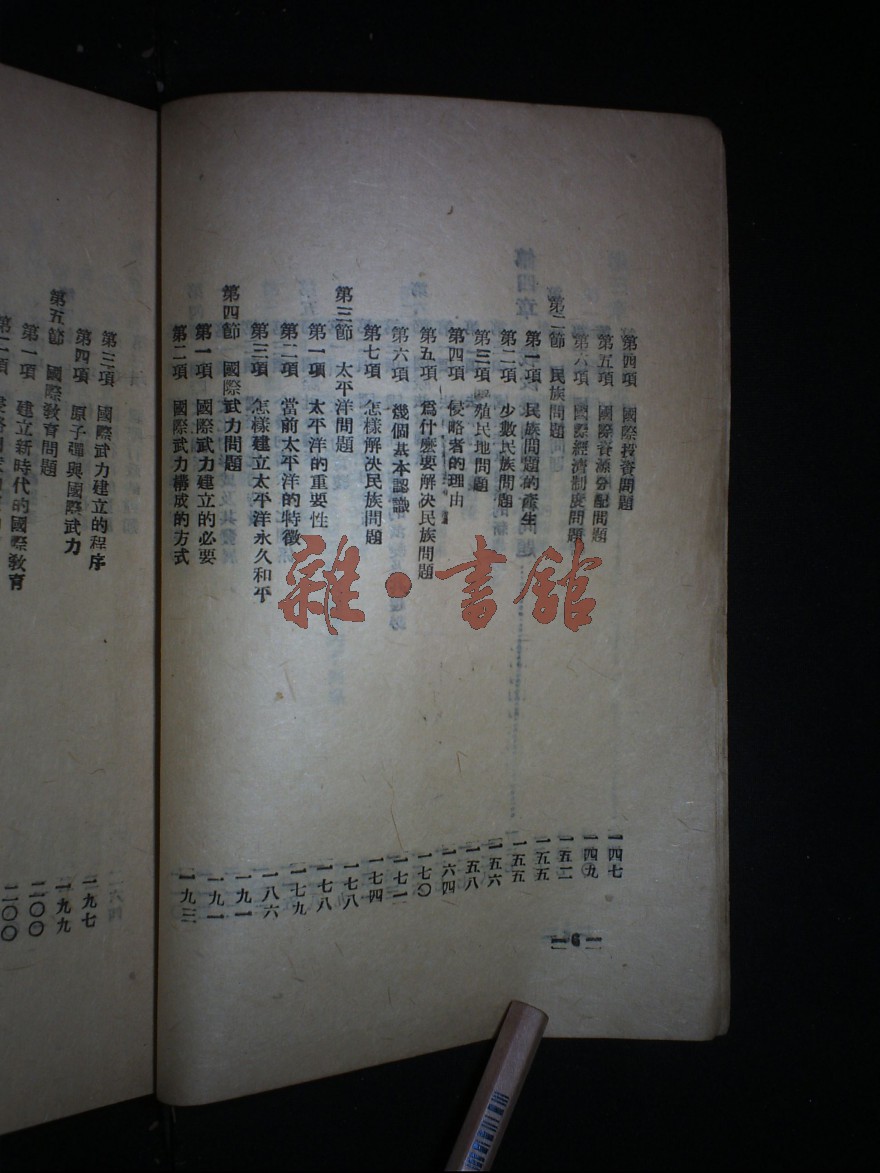 第四項 國際投資問題 一四七
第五項 國際資源分配問題 一四九
第六項 國際經濟制度問題 一五二
第二節 民族問題 一五五
第一項 民族問題的產生 一五五
第二項 少數民族問題 一五六
第三項 殖民地問題 一五八
第四項 侵略者的理由 一六四
第五項 爲什麼要解決民族問題 一七〇
第六項 幾個基本認識 一七二
第七項 怎樣解決民族問題 一七四
第三節 太平洋問題 一七八
第一項 太平洋的重要性 一七八
第二項 當前太平洋的特徵 一七九
第三項 怎樣建立太平洋永久和平 一八六
第四節 國際武力問題 一九一
第一項 國際武力建立的必要 一九一
第二項 國際武力構成的方式 一九三
6
第三項 國際武力建立的程序
第四項 原子彈與國際武力 一九七
第五節 國際敎育問題 一九九
第一項 建立新時代的國際敎育 二〇〇
第二項 二〇〇
雜·書館